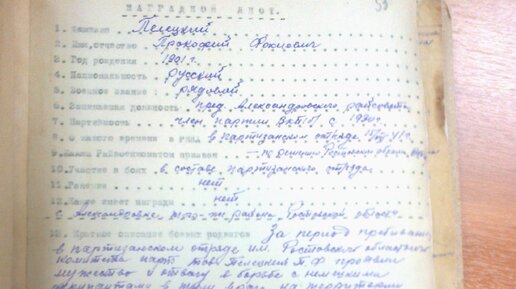 53
НАГРАДНОЙ ЛИСТ.
1. Фамилия Пелецкий
2. Имя, отчество Прокофий Фокиевич
3. Год рождения 1901 г.
4. Национальность русский
5. Воинское звание: рядовой
6. Занимаемая должность пред. Александровского
7. Партийность член партии ВКП(б) с 1930 г.
8. С какого времени в РККА в партизанском отряде
9. Каким Райвоенкоматом призван
10. Участие в боях в составе партизанского отряда
11. Ранение нет
12. Какие имеет награды нет
района, Ростовской области
Краткое описание боевых подвигов За период пребывания
в партизанском отряде им. Ростовского областного
комитета парт. тов. Пелецкий П.Ф. проявил
мужество и отвагу в борьбе с немецкими
оккупантами в тылу врага на территории